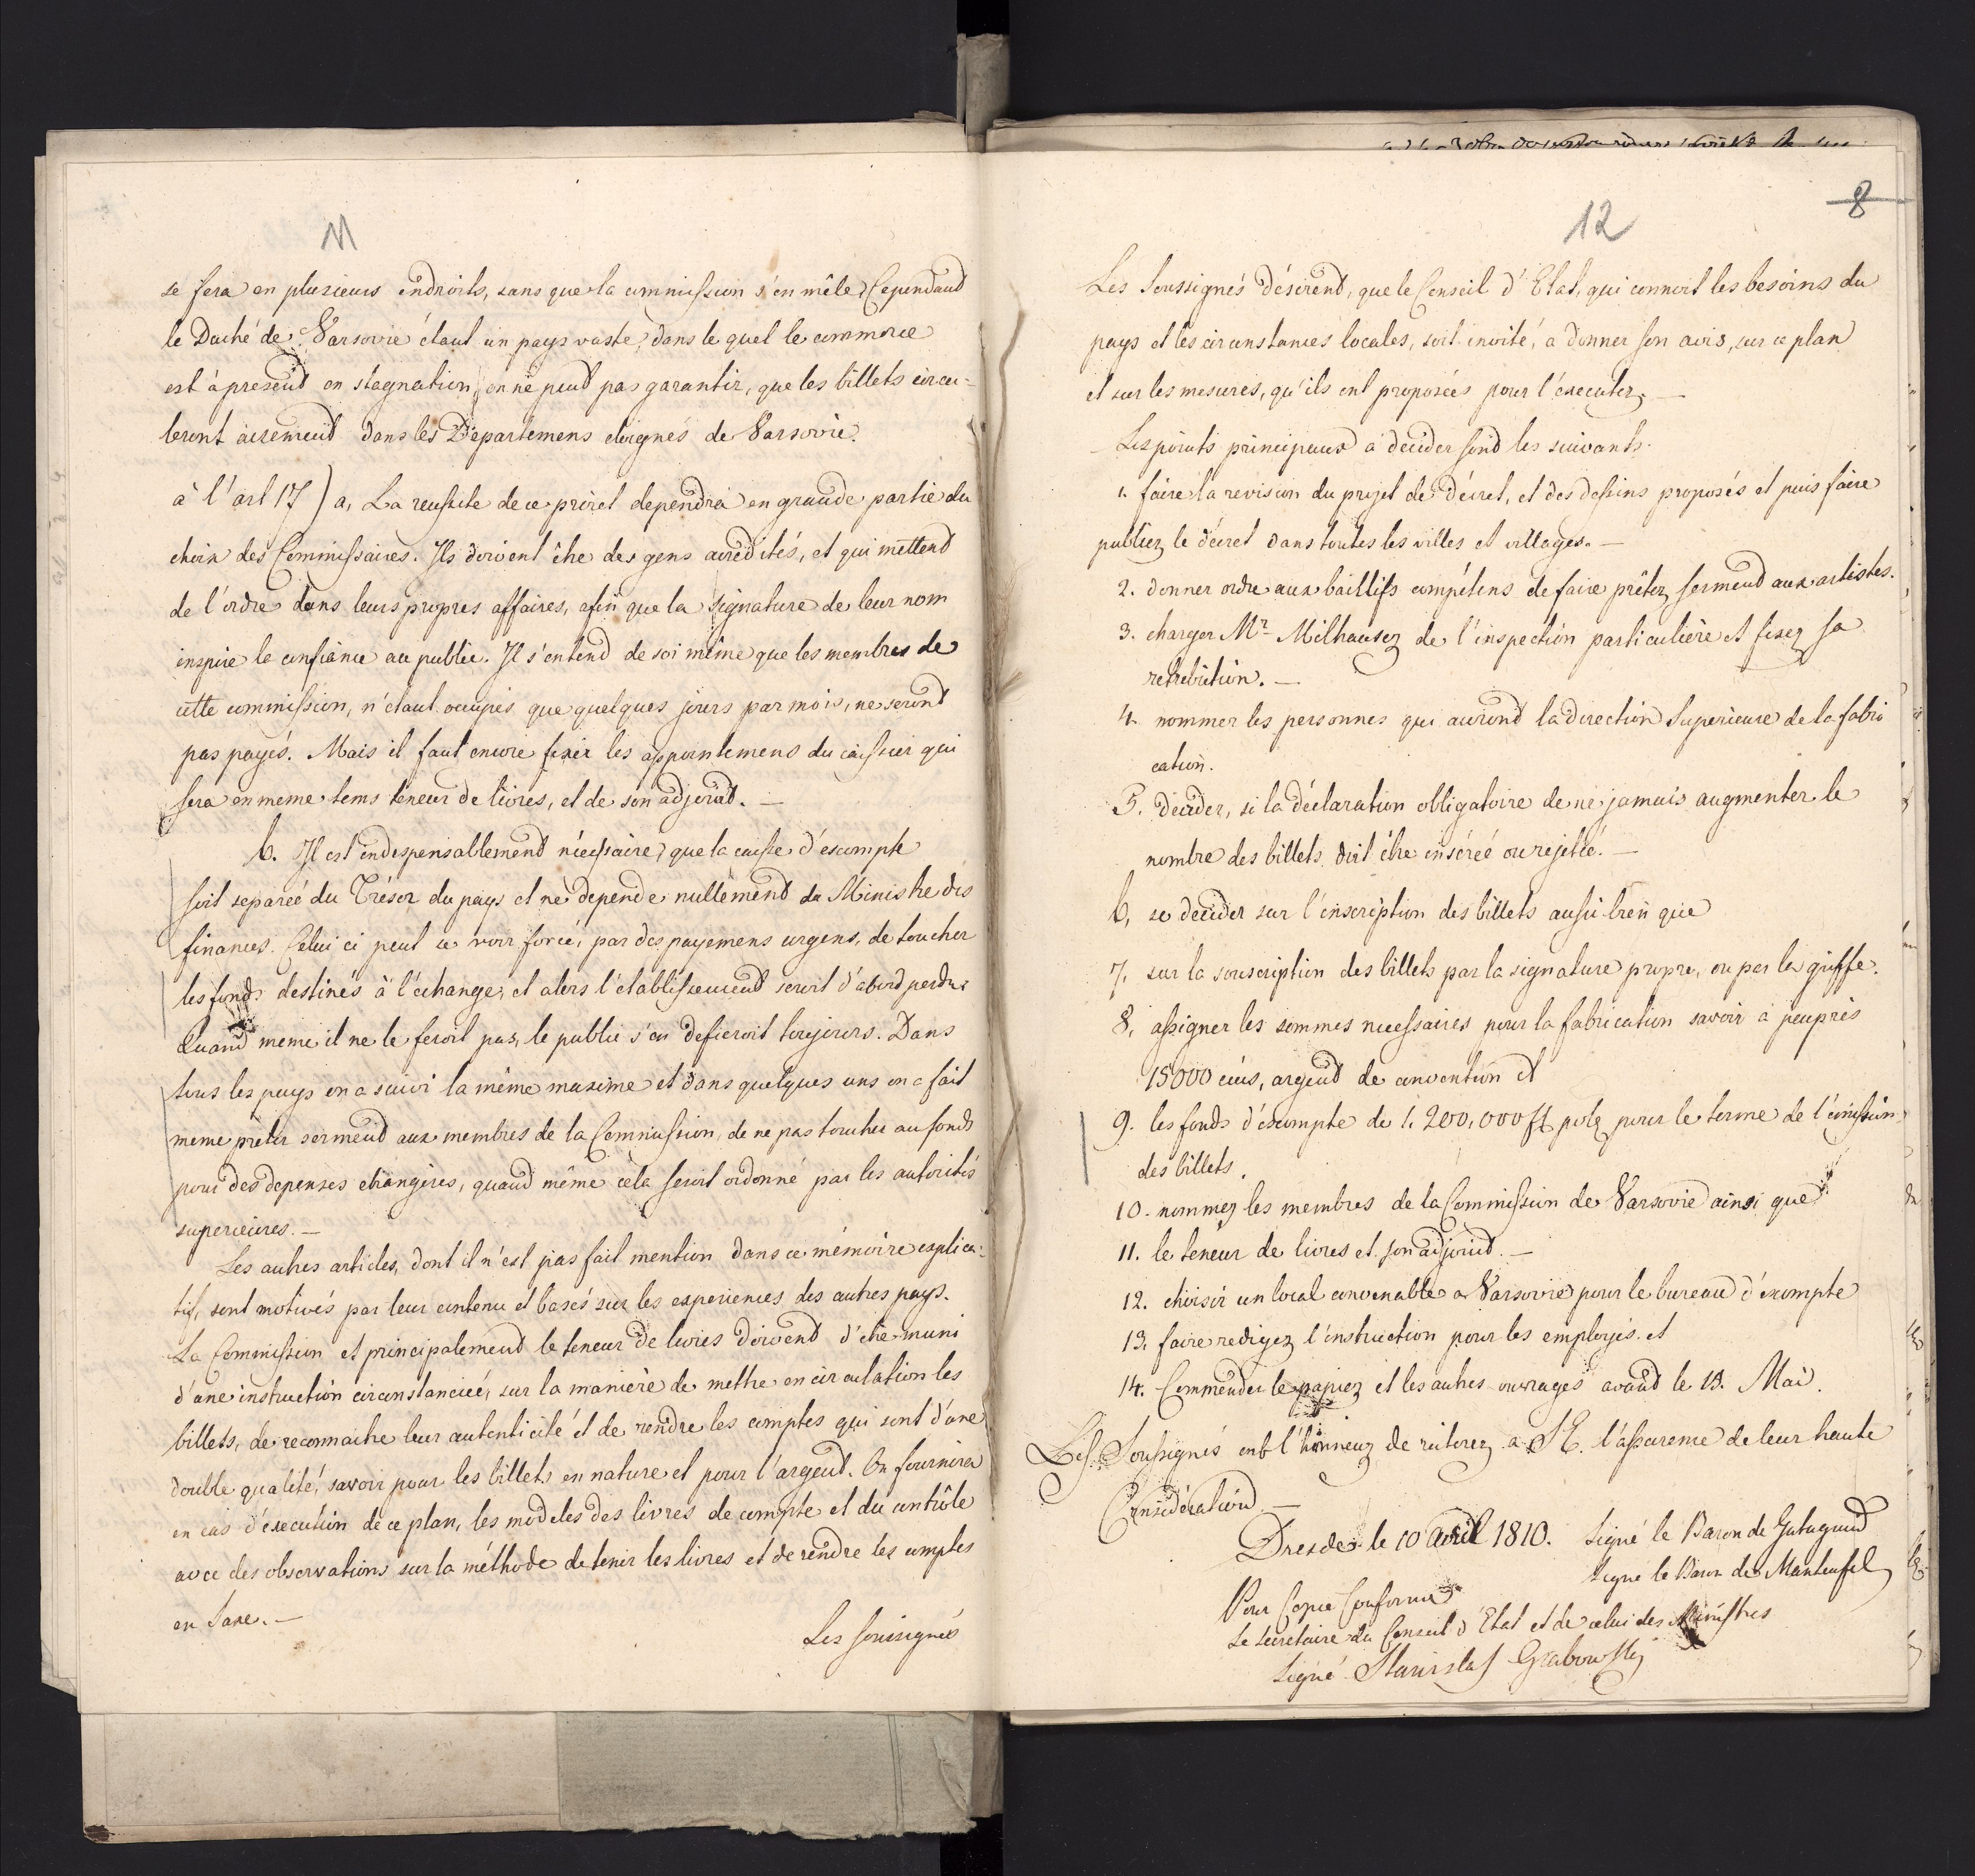 11
se fera en plusieurs endroits, sans que la commission s'en mêle. Cependant
le Duché de Varsovie étant un pays vaste, dans le quel le commerce
est àpresent en stagnation, on ne peut pas garantir, que les billets circu=
leront aisement dans les Départemens eloignés de Varsovie.
à l'art 17) a, La reussite de ce projet dependra en grande partie du
choix des Commissaires. Ils doivent être des gens accrédités, et qui mettent
de l'ordre dans leurs propres affaires, afin que la signature de leur nom
inspire le confiance au public. Il s'entend de soi même que les membres de
cette commission, n'étant occupés que quelques jours par mois, ne seront
pas payés. Mais il faut encore fixer les appointemens du caissier qui
sera en meme tems teneur de livres, et de son adjoint. —
b. Il est indispensablement nécessaire, que la caisse d'éscompte
soit separée du Trésor du pays et ne depende nullement du Ministre des
finances. Celui ci peut se voir forcé, par des payemens urgens, de toucher
les fonds destinés à l'échange, et alors l'établissement seroit d'abord perdu.
Quand meme il ne le feroit pas, le public s'en defieroit toujours. Dans
tous les pays on a suivi la même maxime et dans quelques uns on a fait
meme prêter serment aux membres de la Commission, de ne pas toucher au fonds
pour des depenses etrangéres, quand même cela seroit ordonné par les autorités
superieures. —
Les autres articles, dont il n'est pas fait mention dans ce mémoire explica=
tif, sont motivés par leur contenu et basés sur les experiences des autres pays.
La Commission et principalement le teneur de livres doivent d'être muni
d'une instruction circonstanciée, sur la manière de mettre en circulation les
billets, de reconnaitre leur autenticité et de rendre les comptes qui sont d'une
double qualité, savoir pour les billets en nature et pour l'argent. On fournira
en cas d'éxecution de ce plan, les modeles des livres de compte et du contrôle
avec des observations sur la méthode de tenir les livres et de rendre les comptes
en Saxe. —
Les soussignés
12
8
Les Soussignés désirent, que le Conseil d'Etat, qui connoit les besoins du
pays et les circonstances locales, soit invité, a donner son avis, sur ce plan
et sur les mesures, qu'ils ont proposées pour l'éxecuter. —
Les points principaux a decider sont les suivants.
1. faire la revision du projet de décret, et des dessins proposés et puis faire
publier le décret dans toutes les villes et villages. —
2. donner ordre aux baillifs compétens de faire prêter serment aux artistes.
3. charger Mr. Milhauser de l'inspection particulière et fixer sa
retribution. —
4. nommer les personnes qui auront la direction Superieure de la fabri
cation.
5. decider, si la déclaration obligatoire de ne jamais augmenter le
nombre des billets doit être insérée ou rejettée. —
6, se decider sur l'inscription des billets aussi bien que
7, sur la souscription des billets par la signature propre, ou par la griffe.
8, assigner les sommes necessaires pour la fabrication savoir à peuprès
15000 écus, argent de convention et
9. les fonds d'éscompte de 1.200,000 fl. pol. pour le terme de l'émission
des billets.
10. nommer les membres de la Commission de Varsovie ainsi que
11. le teneur de livres et son adjoint. —
12. choisir un local convenable a Varsovie pour le bureau d'éscompte
13. faire rediger l'instruction pour les employés. et
14. Commender le papier et les autres ouvrages avant le 15. Mai.
Les Soussignés ont l'honneur de reiterer a S E. l'assurance de leur haute
Considération. —
Dresde le 10 avril 1810. Signé le Baron de Gutschmid
Signé le Baron de Manteufel
Pour Copie Conforme
Le Secretaire du Conseil d'Etat et de celui des Ministres
Signé Stanislas Grabowski